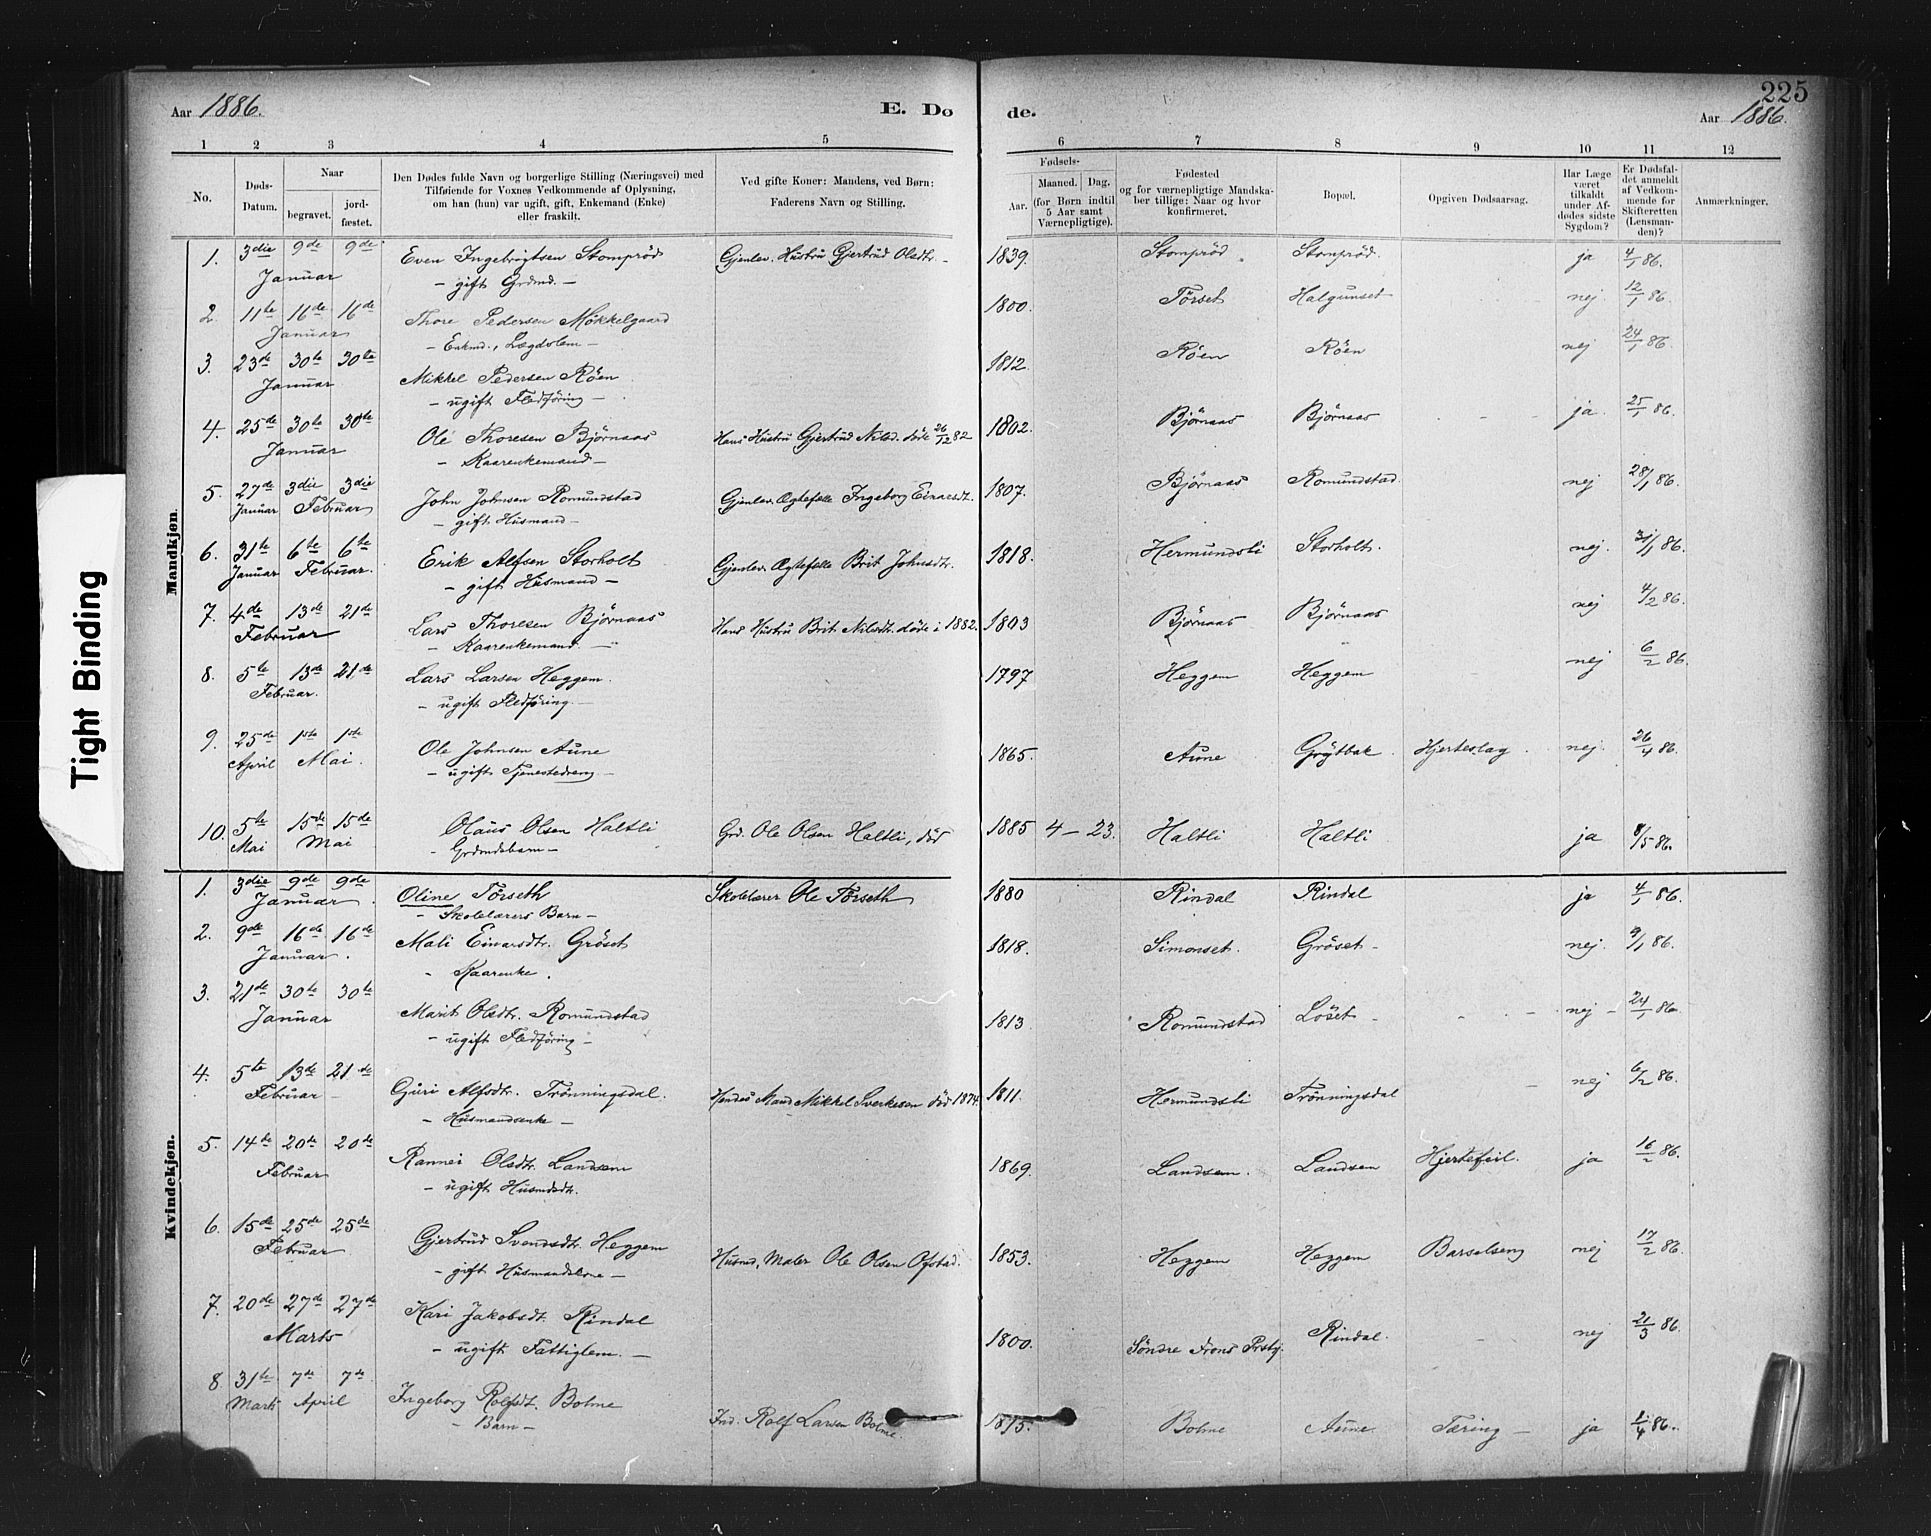 Aar 1886. E. Dø de. Aar 1886.
225
1 2 3 4 5 6 7 8 9 10 11 12
No.
Døds-Datum.
Naar
begravet. jordfæstet.
Den Dødes fulde Navn og borgerlige Stilling (Næringsvei) med
Tilføiende for Voxnes Vedkommende af Oplysning,
om han (hun) var ugift, gift, Enkemand (Enke)
eller fraskilt.
Ved gifte Koner: Mandens, ved Børn:
Faderens Navn og Stilling.
Fødsels-
Aar. Maaned. Dag.
(for Børn indtil
5 Aar samt
Værnepligtige).
Fødested
og for værnepligtige Mandskaber tillige: Naar og hvor
konfirmeret.
Bopæl.
Opgiven Dødsaarsag.
Har Læge
været
tilkaldt
under Afdødes sidste
Sygdom?
Er Dødsfaldet anmeldt
af Vedkommende for
Skifteretten
(Lensmanden)?
Anmærkninger.
Tight Binding
Mandkjøn.
1. 3die 9de 9de Even Ingebrigtsen Stomprød Gjenlev. Hustru Gjertrud Olsdtr. 1839. Stomprød Stomprød. ja 4/1 86.
Januar - gift Grdmd. -
2. 11te 16de 16de Thore Pedersen Møkkelgaard 1800. Törset Halgunset nej. 12/1 86.
Januar - Enkmd., Lægdslem -
3. 23de 30te 30te Mikkel Pedersen Röen 1812. Röen Röen nej 24/1 86.
Januar - ugift Fledföring -
4. 25de 30te 30te Ole Thoresen Björnaas Hans Hustru Gjertrud Nilsd. döde 26/12 82 1802. Björnaas Björnaas ja. 25/1 86.
Januar - Kaarenkemand -
5. 27de 3die 3die John Johnsen Romundstad Gjenlev. Ægtefælle Ingeborg Einarsdt. 1807. Björnaas Romundstad. nej 28/1 86.
Januar Februar - gift Husmand -
6. 31te 6te 6te Erik Alfsen Storholt Gjenlev. Ægtefælle Brit Johnsdtr. 1818. Hermundsli Storholt. nej. 31/1 86.
Januar Februar. - gift Husmand -
7. 4de 13de 21de Lars Thoresen Björnaas Hans Hustru Brit Nilsdtr. döde i 1882. 1803 Björnaas Björnaas nej 4/2 86.
Februar - Kaarenkemand. -
8. 5te 13de 21de Lars Larsen Heggem. 1797 Heggem Heggem nej 6/2 86.
Februar. - ugift Fledföring. -
9. 25de 1ste 1ste Ole Johnsen Aune 1865. Aune Gröjtbak Hjerteslag. nej. 26/4 86.
April Mai. - ugift Tjenestedreng -
10. 5te 15de 15de Olaus Olsen Haltli Grd. Ole Olsen Haltli, död 1885 4 - 23. Haltli Haltli ja 8/5 86.
Mai Mai - Grdmdsbarn -
Kvindekjøn.
1. 3die 9de 9de Oline Törseth Skolelærer Ole Törseth 1880 Rindal Rindal ja 4/1 86.
Januar. - Skolelærers Barn -
2. 9de 16de 16de Mali Einarsdtr. Gröset 1818. Simonset. Gröset - nej. 9/1 86.
Januar. - Kaarenke.
3. 21de 30te 30te Marit Olsdtr. Romundstad 1813 Romundstad Löset - nej - 24/1 86.
Januar - ugift Fledföring -
4. 5te 13de 21de Guri Alfsdtr. Trönningsdal. Hendes Mand Mikkel Sverkesen död 1874. 1811. Hermundsli Trönningsdal nej 6/2 86.
Februar - Husmandsenke -
5. 14de 20de 20de Rannei Olsdtr. Landsem 1869. Landsem. Landsem Hjertefeil. ja 16/2 86.
Februar - ugift Husmdsdtr.
6. 15de 25de 25de Gjertrud Svendsdtr. Heggem Husmd, Maler Ole Olsen Ofstad. 1853. Heggem Heggem Barselseng nej 17/2 86.
Februar - gift Husmandskone -
7. 20de 27de 27de Kari Jakobsdt. Rindal 1800. Söndre Frons Prstgj. Rindal. nej 21/3 86.
Marts - ugift Fattiglem. -
8 31te 7de 7de Ingeborg Rolfsdt. Bolme Ind. Rolf Larsen Bolme. 1875. Bolme Aune. Tæring - ja 1/4 86.
Marts April - Barn -